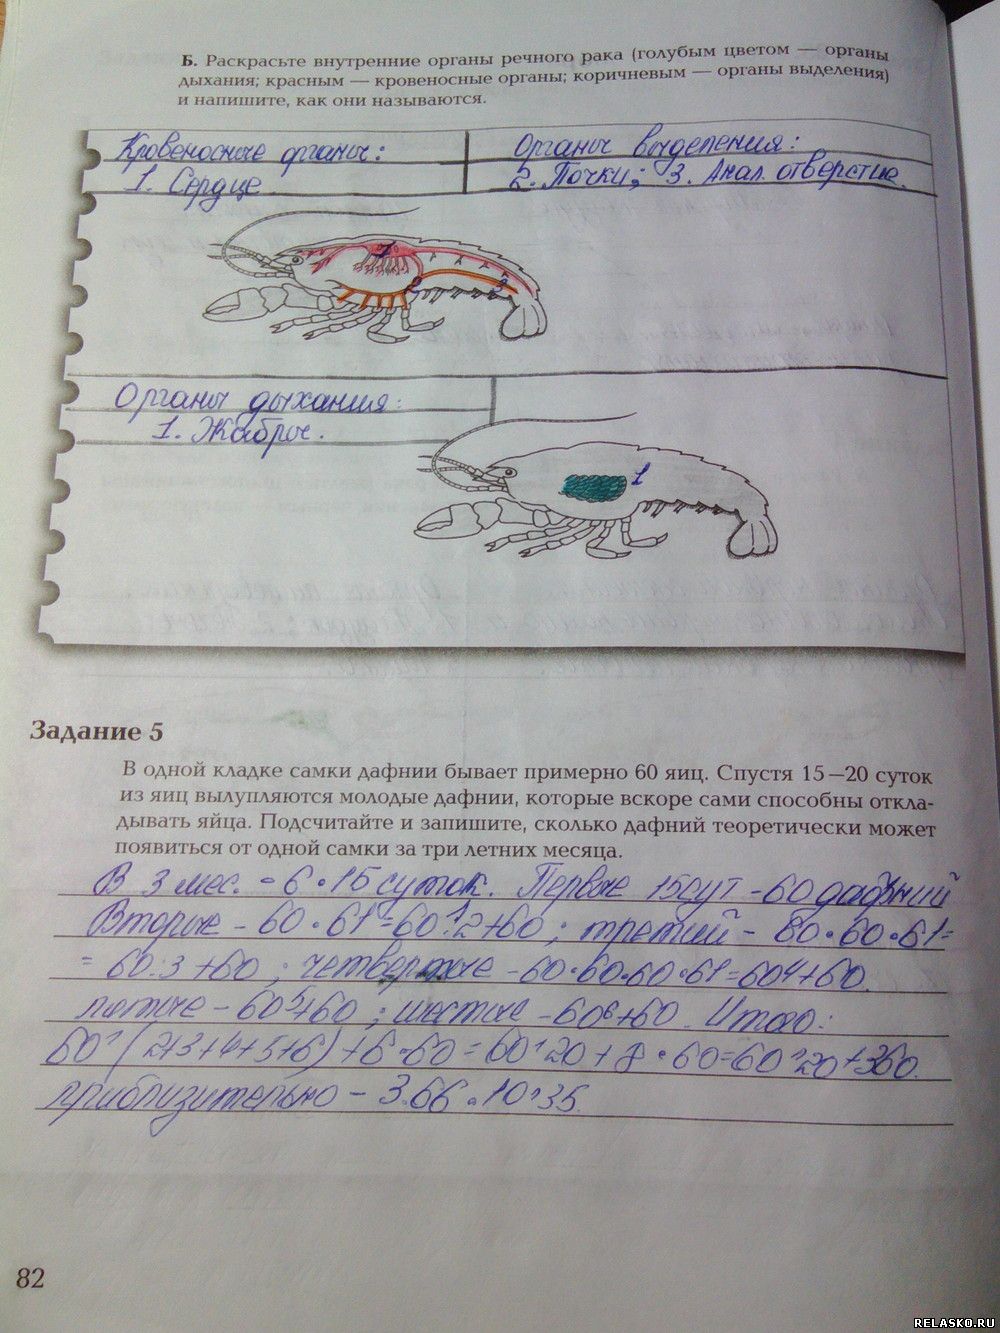 Б. Раскрасьте внутренние органы речного рака (голубым цветом — органы
дыхания; красным — кровеносные органы; коричневым — органы выделения)
и напишите, как они называются.
Кровеносные органы:
1. Сердце
Органы выделения:
2. Почки; 3. Анал. отверстие.
1
2
3
Органы дыхания:
1. Жабры.
1
Задание 5
В одной кладке самки дафнии бывает примерно 60 яиц. Спустя 15—20 суток
из яиц вылупляются молодые дафнии, которые вскоре сами способны откла-
дывать яйца. Подсчитайте и запишите, сколько дафний теоретически может
появиться от одной самки за три летних месяца.
В 3 мес. - 6 • 15 суток. Первые 15 сут - 60 дафний
Вторые - 60 • 61 = 60^2+60; третий - 60•60•61=
= 60^3+60; четвертые - 60•60•60•61=60^4+60.
пятые - 60^5+60; шестые - 60^6+60. Итого:
60^(2+3+4+5+6)+6•60=60^20+8•60=60^20+360.
приблизительно - 3.66•10^35
82
RELASKO.RU